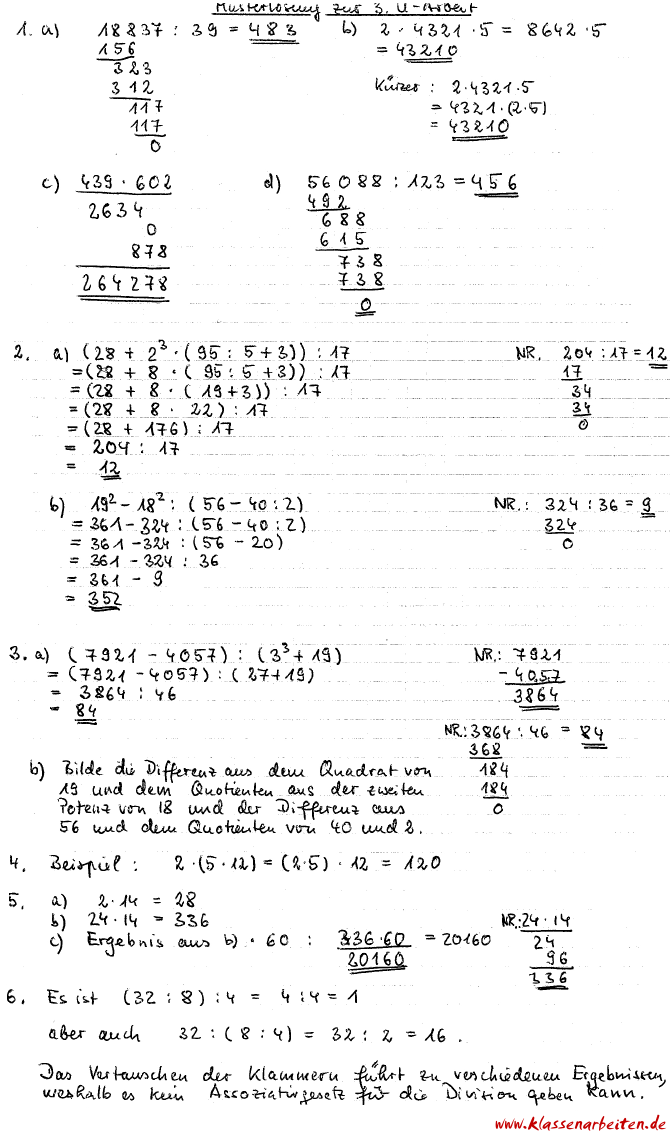 Musterlösung zur 3. U-Arbeit
1. a) 18837 : 39 = 483
156
323
312
117
117
0
b) 2 · 4321 · 5 = 8642 · 5
= 43210
Kürzer : 2 · 4321 · 5
= 4321 · (2 · 5)
= 43210
c) 439 · 602
2634
0
878
264278
d) 56088 : 123 = 456
492
688
615
738
738
0
2. a) (28 + 2³ · (95 : 5 + 3)) : 17
= (28 + 8 · (95 : 5 + 3)) : 17
= (28 + 8 · (19 + 3)) : 17
= (28 + 8 · 22) : 17
= (28 + 176) : 17
= 204 : 17
= 12
NR. 204 : 17 = 12
17
34
34
0
b) 19² - 18² : (56 - 40 : 2)
= 361 - 324 : (56 - 40 : 2)
= 361 - 324 : (56 - 20)
= 361 - 324 : 36
= 361 - 9
= 352
NR.: 324 : 36 = 9
324
0
3. a) (7921 - 4057) : (3³ + 19)
= (7921 - 4057) : (27 + 19)
= 3864 : 46
= 84
NR.: 7921
- 4057
3864
NR.: 3864 : 46 = 84
368
184
184
0
b) Bilde die Differenz aus dem Quadrat von
19 und dem Quotienten aus der zweiten
Potenz von 18 und der Differenz aus
56 und dem Quotienten von 40 und 2.
4. Beispiel : 2 · (5 · 12) = (2 · 5) · 12 = 120
5. a) 2 · 14 = 28
b) 24 · 14 = 336
c) Ergebnis aus b) · 60 : 336 · 60 = 20160
20160
NR: 24 · 14
24
96
336
6. Es ist (32 : 8) : 4 = 4 : 4 = 1
aber auch 32 : (8 : 4) = 32 : 2 = 16 .
Das Vertauschen der Klammern führt zu verschiedenen Ergebnissen,
weshalb es kein Assoziativgesetz für die Division geben kann.
www.klassenarbeiten.de